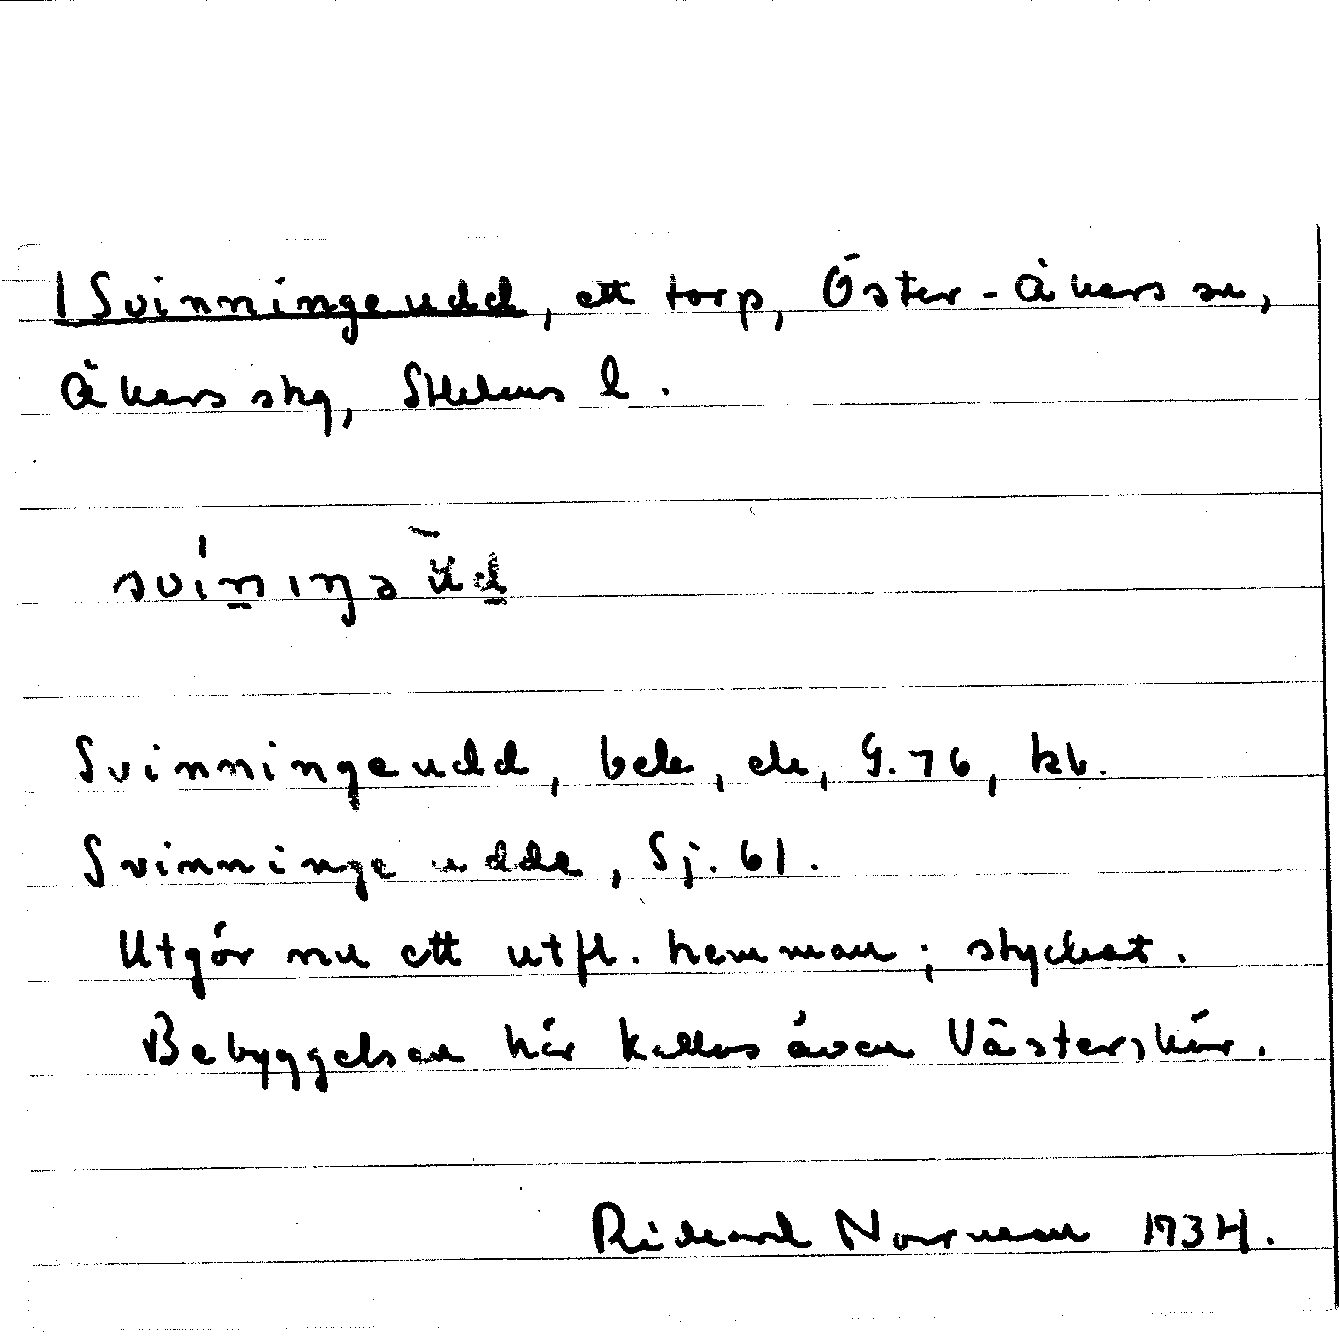 1 Svinningeudd, ett torp, Öster-Åkers sn,
Åkers skg, Sthlms l.
Svinningeudd, beb, ek, G. 76, kb.
Svinninge udde, Sj. 61.
Utgör nu ett utfl. hemman; styckat.
Bebyggelsen här kallas även Västerskär.
Rickard Norrman 1934.